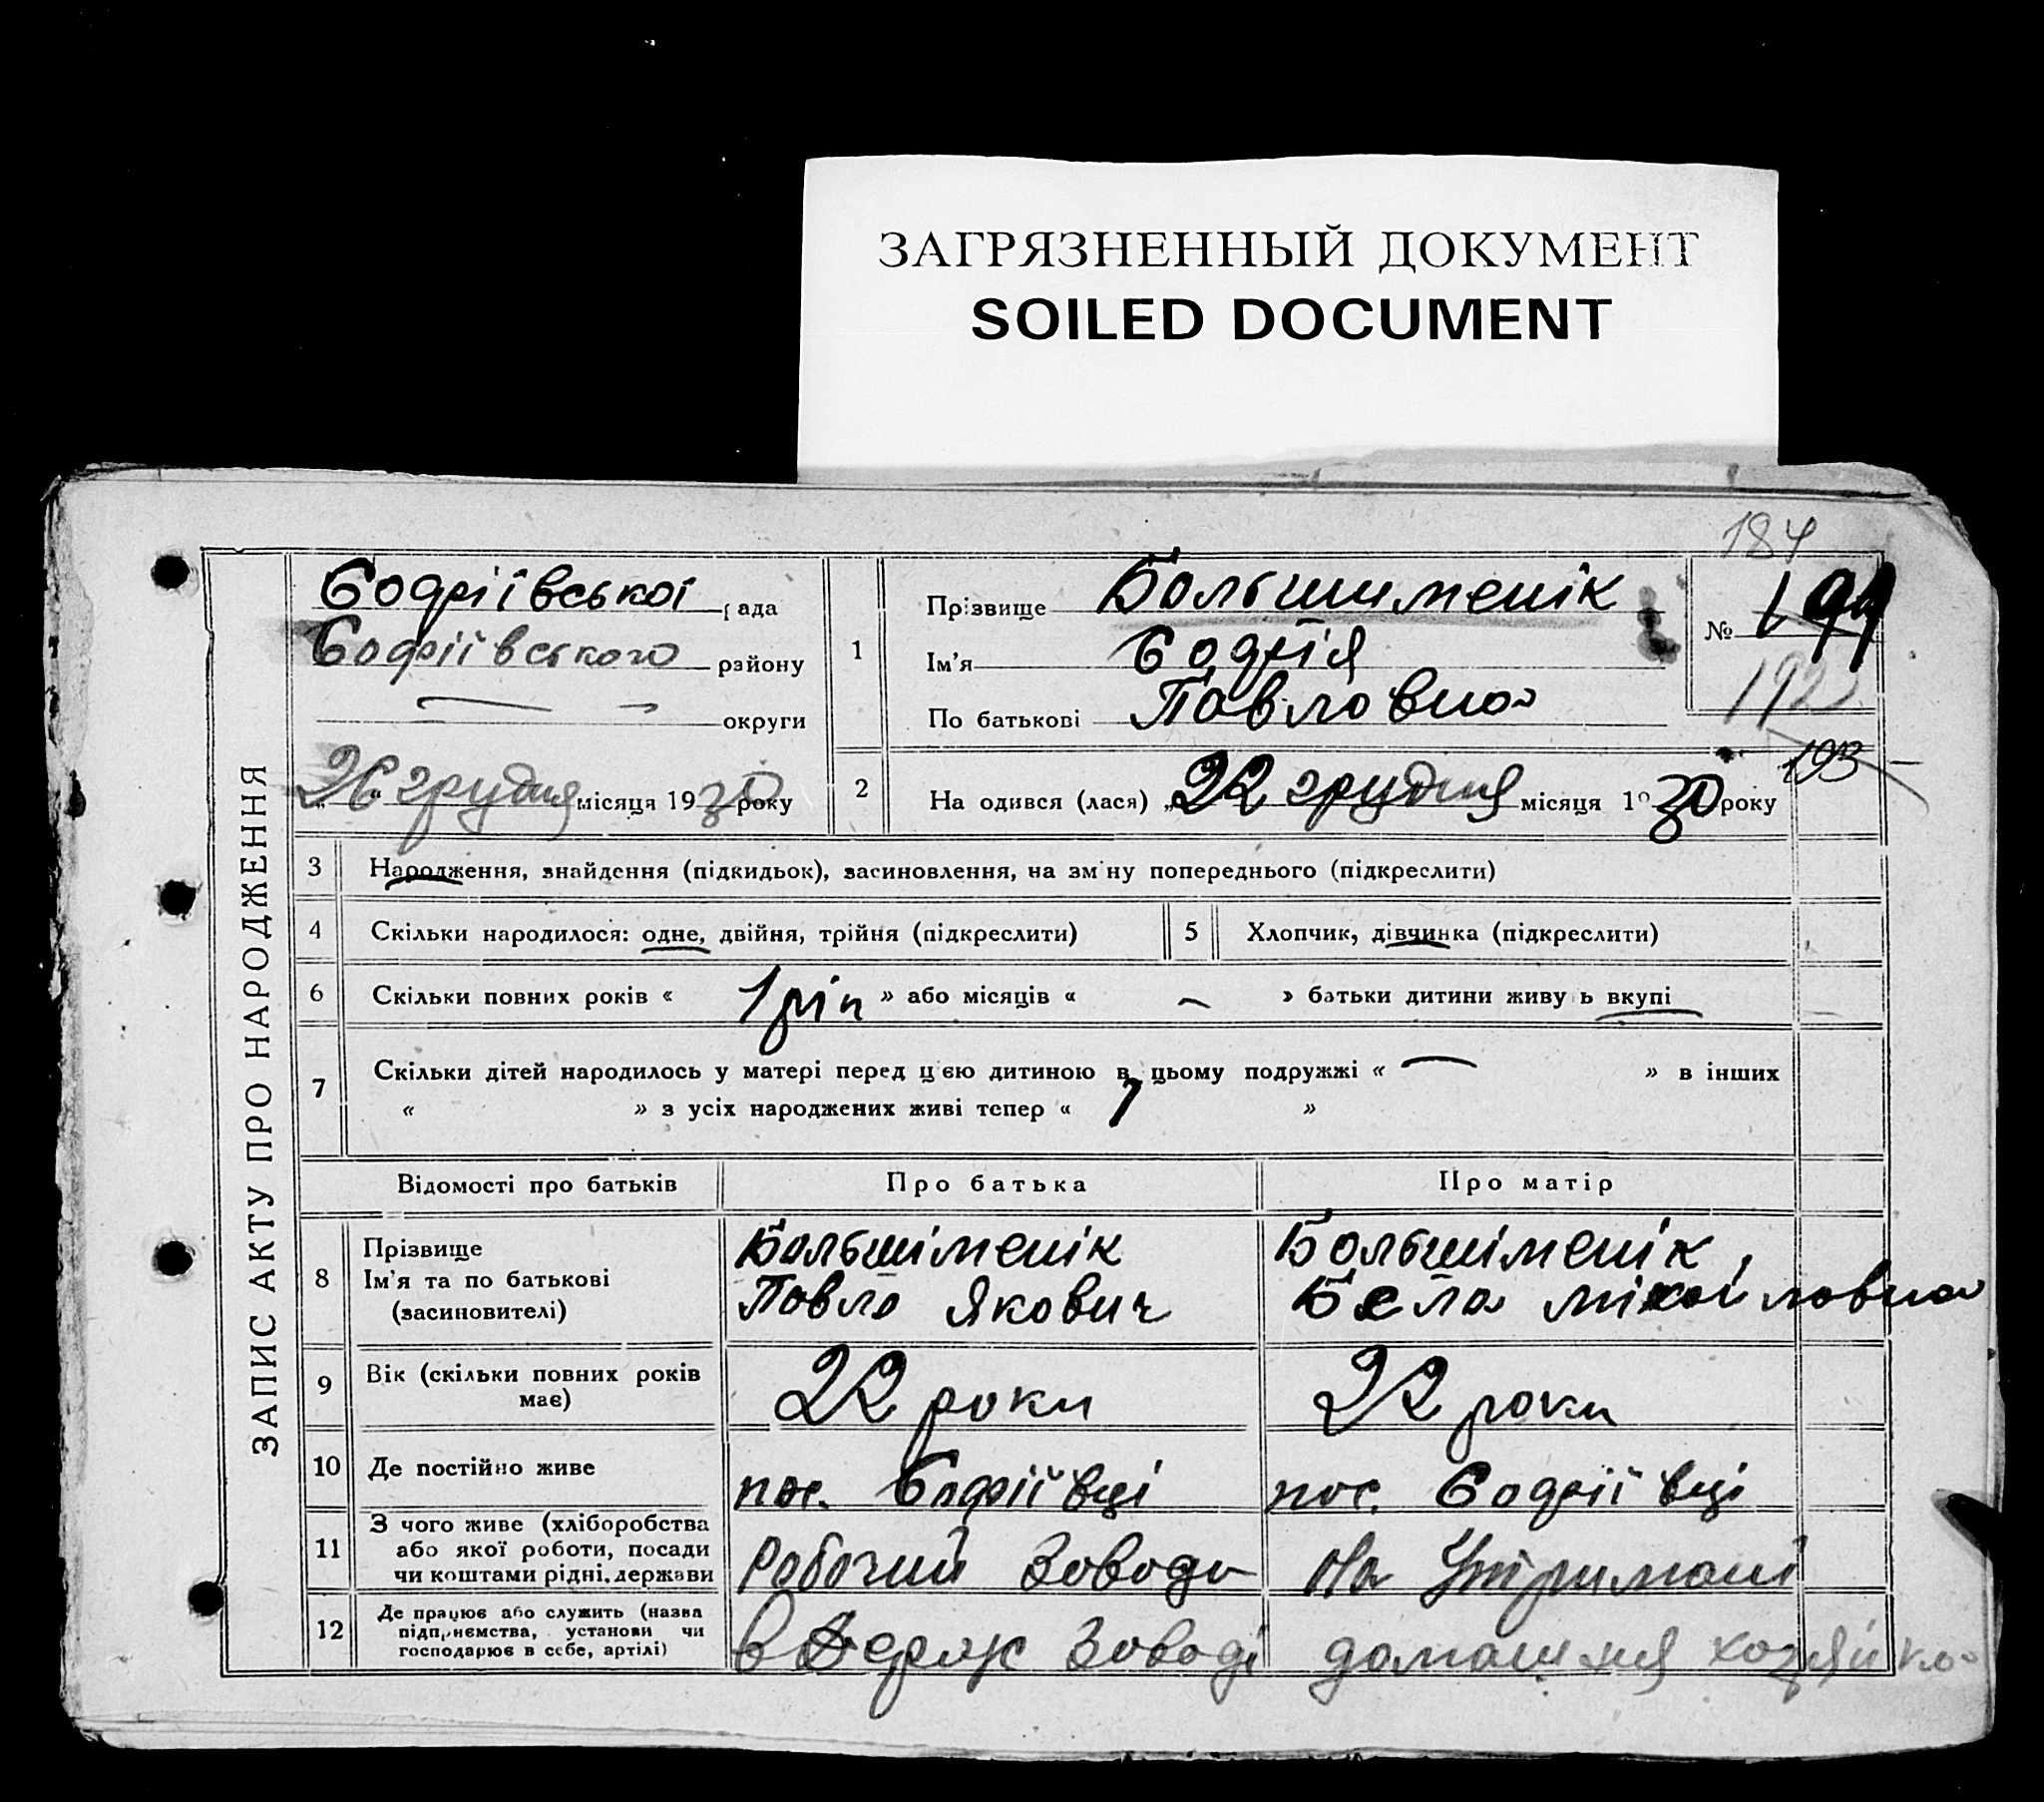 ЗАГРЯЗНЕННЫЙ ДОКУМЕНТ
SOILED DOCUMENT
184
ЗАПИС АКТУ ПРО НАРОДЖЕННЯ
Софіївської рада
Софіївського району
округи
„26“ грудня місяця 1930 року
1
Прізвище Большименік
Ім'я Софія
По батькові Павловна
№ 199
192
193
2
На одився (лася) „22 грудня місяця 1930 року
3 Народження, знайдення (підкидьок), засиновлення, на зм ну попереднього (підкреслити)
4 Скільки народилося: одне, двійня, трійня (підкреслити)
5 Хлопчик, дівчинка (підкреслити)
6 Скільки повних років « 1 рік » або місяців « — » батьки дитини живу ь вкупі
7 Скільки дітей народилось у матері перед цією дитиною в цьому подружжі « — » в інших
« » з усіх народжених живі тепер « 1 »
Відомості про батьків Про батька Про матір
8 Прізвище
Ім'я та по батькові
(засиновителі)
Большіменік
Павло Якович
Большіменік,
Бела міхаіловна
9 Вік (скільки повних років
має)
22 роки
22 роки
10 Де постійно живе
пос. Софіївці
пос. Софіївці
11 З чого живе (хліборобства
або якої роботи, посади
чи коштами рідні, держави
Робочий Заводу
На Утримані
12 Де працює або служить (назва
підприємства, установи чи
господарює в себе, артілі)
в Держ Заводі
домашня хозяйка